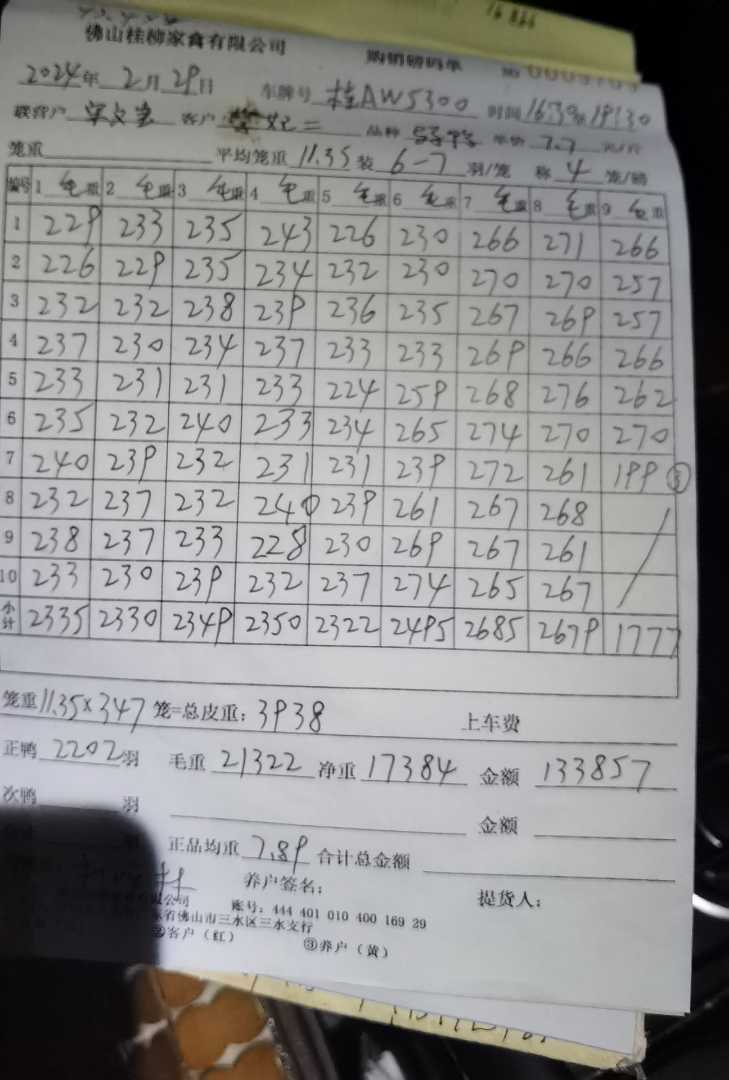 佛山桂柳家禽有限公司 购销磅码单 №
2024年 2月 29日 车牌号 桂AW5300 时间 16:30至19:30
联营户 客户 品种 单价 7.7 元/斤
笼重 平均笼重 11.35 装 6-7 羽/笼 称 4 笼/磅
编号 1 毛重 2 毛重 3 毛重 4 毛重 5 毛重 6 毛重 7 毛重 8 毛重 9 毛重
1 229 233 235 243 226 230 266 271 266
2 226 229 235 234 232 230 270 270 257
3 232 232 238 239 236 235 267 269 257
4 237 230 234 237 233 233 269 266 266
5 233 231 231 233 224 259 268 276 262
6 235 232 240 233 234 265 274 270 270
7 240 239 232 231 231 239 272 261 199 ③
8 232 237 232 240 239 261 267 268
9 238 237 233 228 230 269 267 261
10 233 230 239 232 237 274 265 267
小计 2335 2330 2349 2350 2322 2495 2685 2679 1777
笼重 11.35×347 笼=总皮重: 3938 上车费
正鸭 2202 羽 毛重 21322 净重 17384 金额 133857
次鸭 羽 金额
羽 正品均重 7.89 合计总金额
养户签名: 提货人:
公司 账号: 444 401 010 400 169 29
省佛山市三水区三水支行
②客户(红) ③养户(黄)